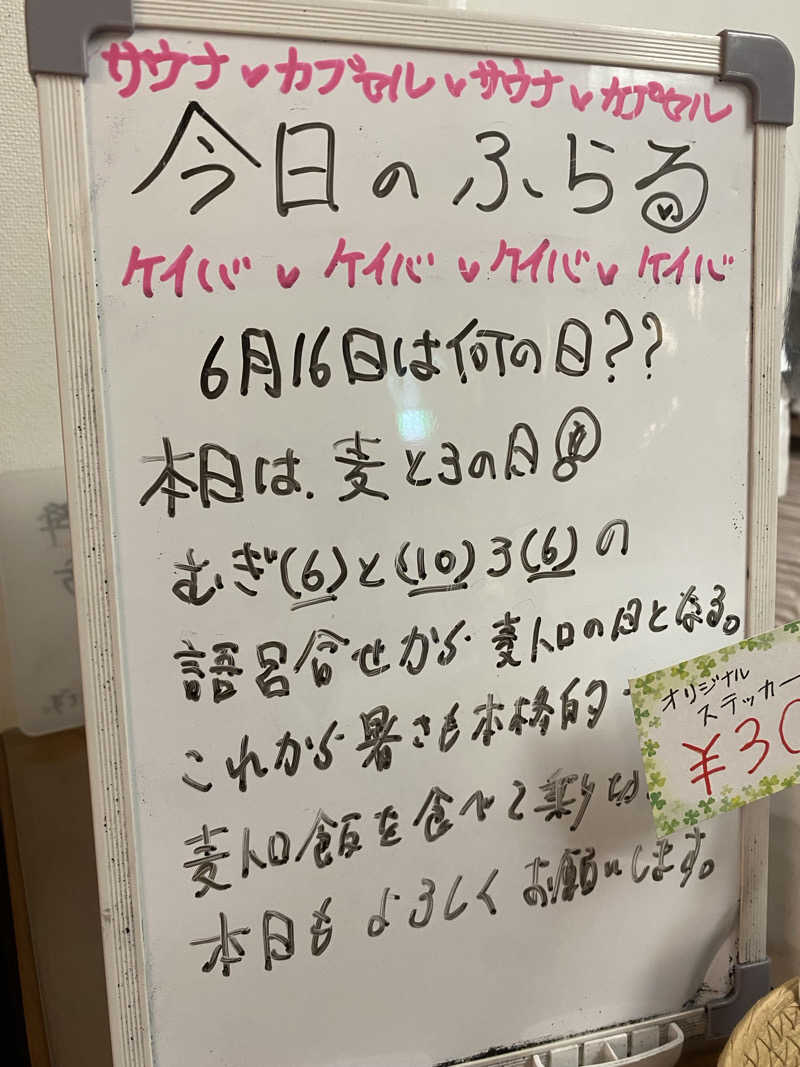 サウナ♥カプセル♥サウナ♥カプセル
今日のふらる
ケイバ♥ケイバ♥ケイバ♥ケイバ
6月16日は何の日??
本日は、麦とろの日!!
むぎ(6)と(10)ろ(6)の
語呂合せから麦トロの日となる。
これから暑さも本格的
麦トロ飯を食べて乗り切
本日もよろしくお願いします。
オリジナル
ステッカー
¥30